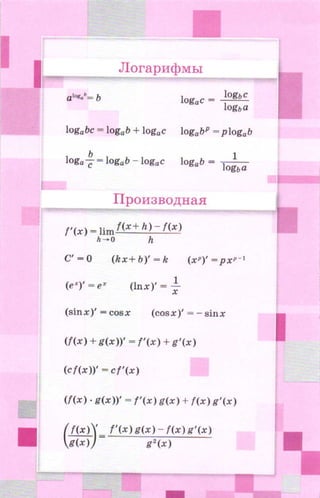 Логарифмы
a^{log_a b} = b    log_a c = \frac{log_b c}{log_b a}
log_a bc = log_a b + log_a c    log_a b^p = p log_a b
log_a \frac{b}{c} = log_a b - log_a c    log_a b = \frac{1}{log_b a}
Производная
f'(x) = \lim_{h→0} \frac{f(x+h) - f(x)}{h}
C' = 0    (kx + b)' = k    (x^p)' = px^{p-1}
(e^x)' = e^x    (ln x)' = \frac{1}{x}
(sin x)' = cos x    (cos x)' = - sin x
(f(x) + g(x))' = f'(x) + g'(x)
(cf(x))' = cf'(x)
(f(x) · g(x))' = f'(x) g(x) + f(x) g'(x)
(\frac{f(x)}{g(x)})' = \frac{f'(x) g(x) - f(x) g'(x)}{g^2(x)}